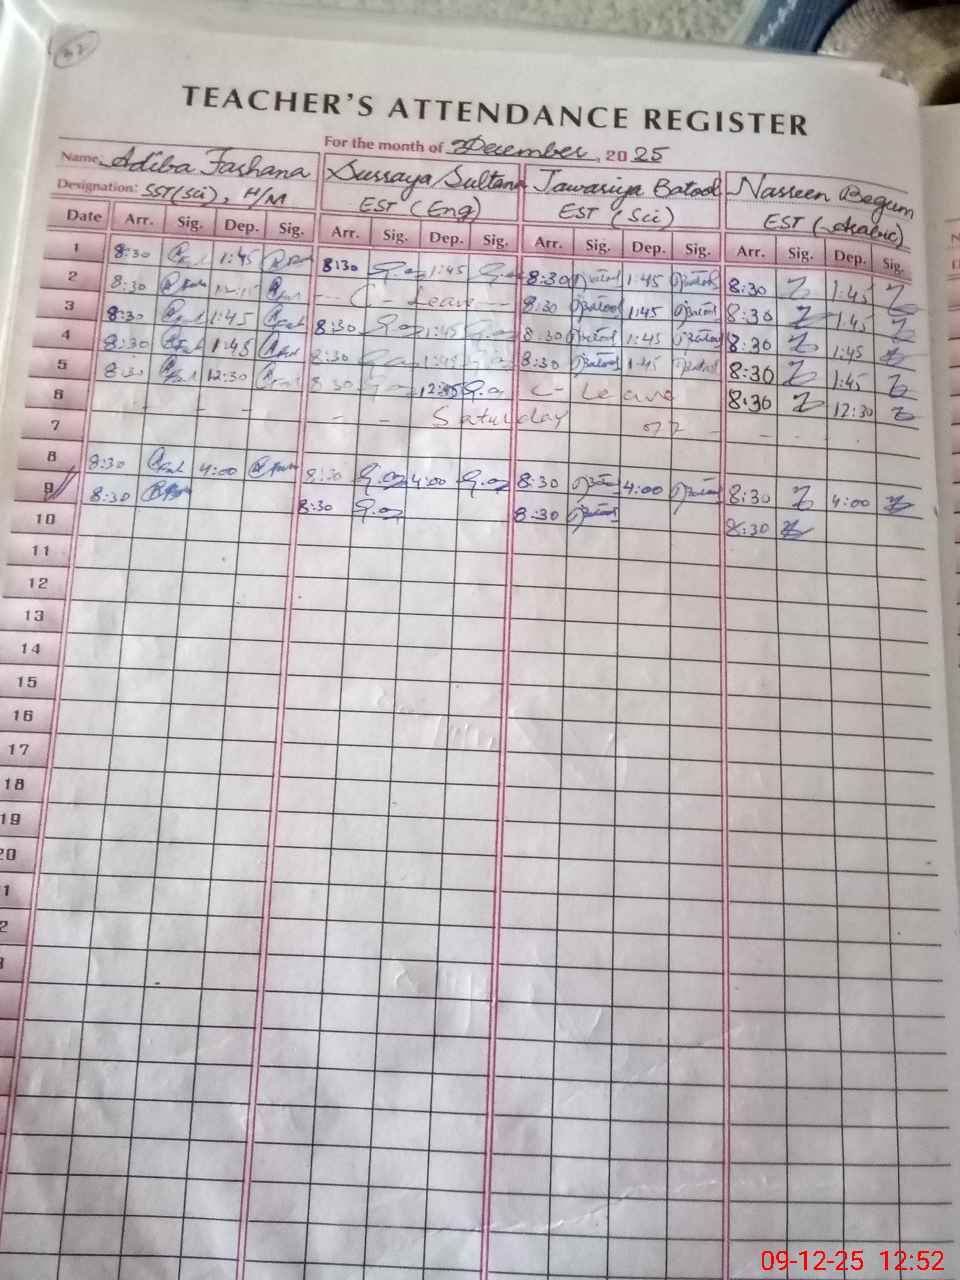 62
TEACHER'S ATTENDANCE REGISTER
For the month of December, 2025
Name Adiba Farhana Surraya Sultana Jawariya Batool Nasreen Begum
Designation: SST(Sci), H/M EST (Eng) EST (Sci) EST (Arabic)
Date Arr. Sig. Dep. Sig. Arr. Sig. Dep. Sig. Arr. Sig. Dep. Sig. Arr. Sig. Dep. Sig.
1 8:30 1:45 8:30 1:45 8:30 Batool 1:45 Batool 8:30 1:45
2 8:30 12:15 --- C - Leave --- 8:30 Batool 1:45 Batool 8:30 1:45
3 8:30 1:45 8:30 1:45 8:30 Batool 1:45 Batool 8:30 1:45
4 8:30 1:45 8:30 1:45 8:30 Batool 1:45 Batool 8:30 1:45
5 8:30 12:30 8:30 C - Leave 8:30 12:30
6 - - - - - Saturday off - - -
7
8 8:30 4:00 8:30 4:00 8:30 Batool 4:00 Batool 8:30 4:00
9 8:30 8:30 8:30 Batool 8:30
10
11
12
13
14
15
16
17
18
19
20
1
2
3
09-12-25 12:52